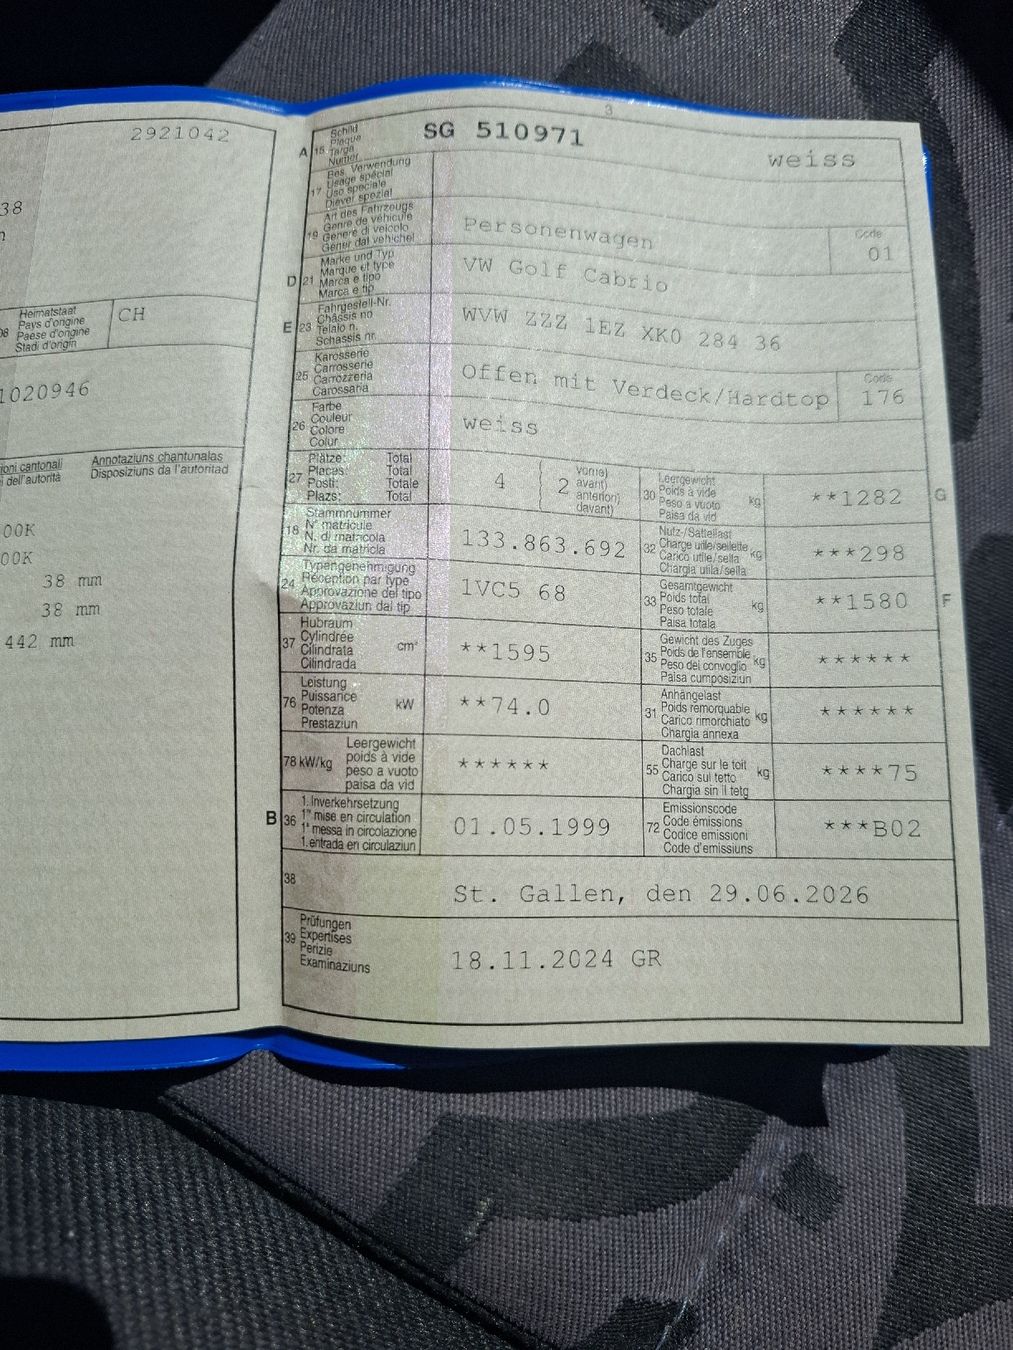 2921042
38
08 Heimatstaat
Pays d'origine
Paese d'origine
Stadi d'origin
CH
1020946
ioni cantonali
i dell'autorità
Annotaziuns chantunalas
Disposiziuns da l'autoritad
00K
00K
38 mm
38 mm
442 mm
3
A 15 Schild
Plaque
Targa
Numer
SG 510971
weiss
17 Bes. Verwendung
Usage spécial
Uso speciale
Diever spezial
19 Art des Fahrzeugs
Genre de véhicule
Genere di veicolo
Gener dal vehichel
Personenwagen
Code
01
D 21 Marke und Typ
Marque et type
Marca e tipo
Marca e tip
VW Golf Cabrio
E 23 Fahrgestell-Nr.
Châssis no
Telaio n.
Schassis nr.
WVW ZZZ 1EZ XK0 284 36
25 Karosserie
Carrosserie
Carrozzeria
Carossaria
Offen mit Verdeck/Hardtop
Code
176
26 Farbe
Couleur
Colore
Colur
weiss
27 Plätze: Total
Places: Total
Posti: Totale
Plazs: Total
4
2
vorne)
avant)
anteriori)
davant)
30 Leergewicht
Poids à vide
Peso a vuoto
Paisa da vid
kg
**1282
G
18 Stammnummer
N° matricule
N. di matricola
Nr. da matricla
133.863.692
32 Nutz-/Sattellast
Charge utile/sellette
Carico utile/sella
Chargia utila/sella
kg
***298
24 Typengenehmigung
Réception par type
Approvazione del tipo
Approvaziun dal tip
1VC5 68
33 Gesamtgewicht
Poids total
Peso totale
Paisa totala
kg
**1580
F
37 Hubraum
Cylindrée
Cilindrata
Cilindrada
cm³
**1595
35 Gewicht des Zuges
Poids de l'ensemble
Peso del convoglio
Paisa cumposiziun
kg
******
76 Leistung
Puissance
Potenza
Prestaziun
kW
**74.0
31 Anhängelast
Poids remorquable
Carico rimorchiato
Chargia annexa
kg
******
78 kW/kg
Leergewicht
poids à vide
peso a vuoto
paisa da vid
******
55 Dachlast
Charge sur le toit
Carico sul tetto
Chargia sin il tetg
kg
****75
B 36 1. Inverkehrsetzung
1re mise en circulation
1a messa in circolazione
1. entrada en circulaziun
01.05.1999
72 Emissionscode
Code émissions
Codice emissioni
Code d'emissiuns
***B02
38
St. Gallen, den 29.06.2026
39 Prüfungen
Expertises
Perizie
Examinaziuns
18.11.2024 GR